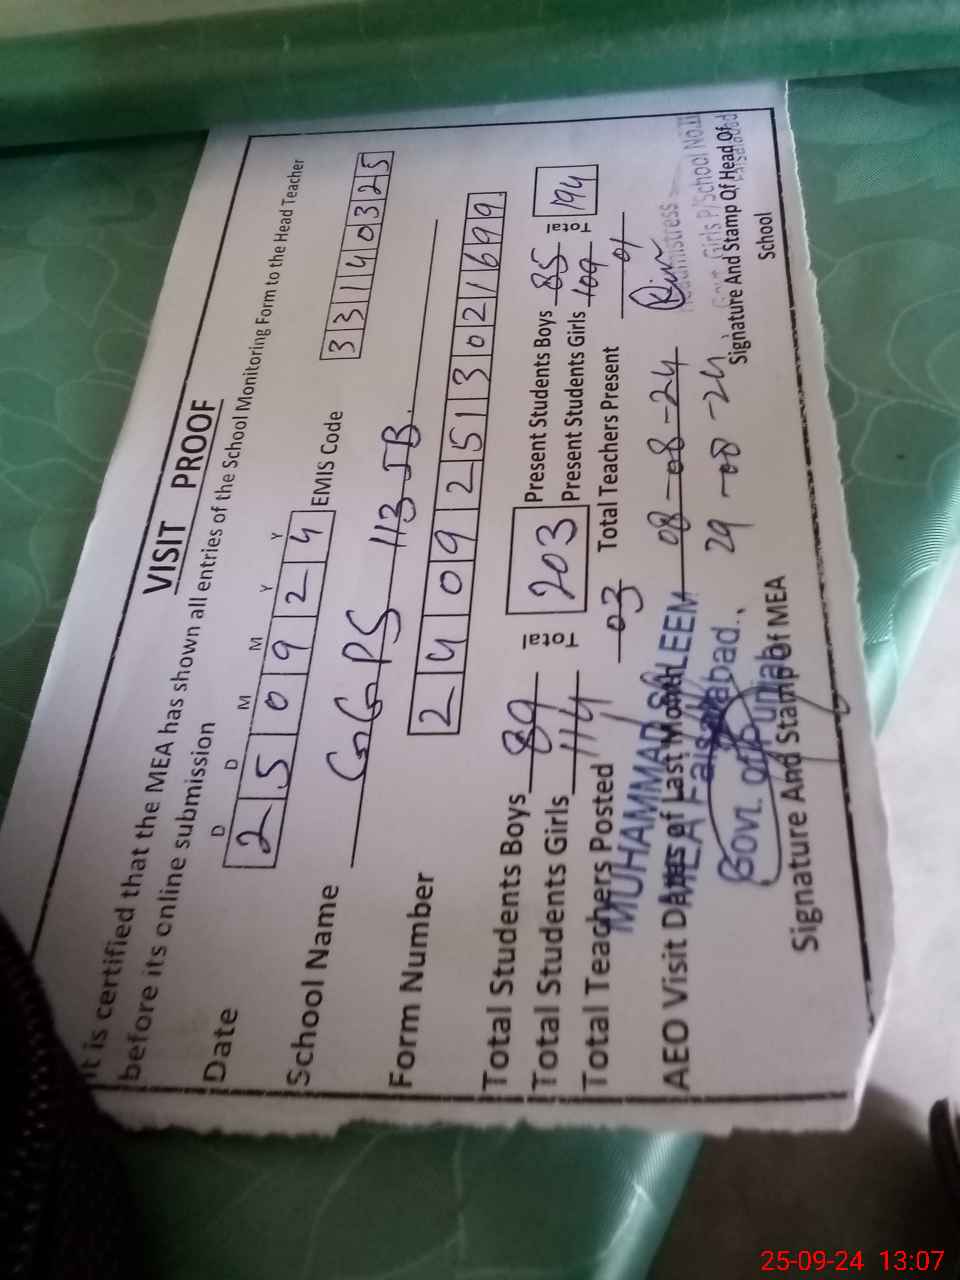 VISIT PROOF
It is certified that the MEA has shown all entries of the School Monitoring Form to the Head Teacher
before its online submission
D D M M Y Y
Date 2 5 0 9 2 4 EMIS Code 3 3 1 4 0 3 2 5
School Name GGPS 113 JB.
Form Number 2 4 0 9 2 5 1 3 0 2 1 6 9 9
Total Students Boys 89 Total 203 Present Students Boys 85 Total 194
Total Students Girls 114 Present Students Girls 109
Total Teachers Posted 03 Total Teachers Present 01
MUHAMMAD SALEEM
AEO Visit Dates of Last Month 08-08-24
29-08-24
MEA Faisalabad.
Govt. of Punjab
Headmistress
Govt. Girls P/School No.II
Faisalabad
Signature And Stamp of MEA
Signature And Stamp Of Head Of
School
25-09-24 13:07